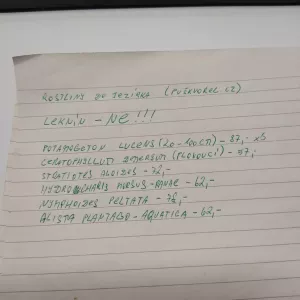 ROSTLINY DO JEZÍRKA (PUŠKVOREC CZ)
LEKNÍN - NE!!!
POTAMOGETON LUCENS (20-100CM) - 87,- x5
CERATOPHYLLUM DEMERSUM (PLOVOUCÍ) - 77,-
STRATIOTES ALOIDES - 72,-
HYDROCHARIS MORSUS-RANAE - 62,-
NYMPHOIDES PELTATA - 72,-
ALISMA PLANTAGO-AQUATICA - 62,-